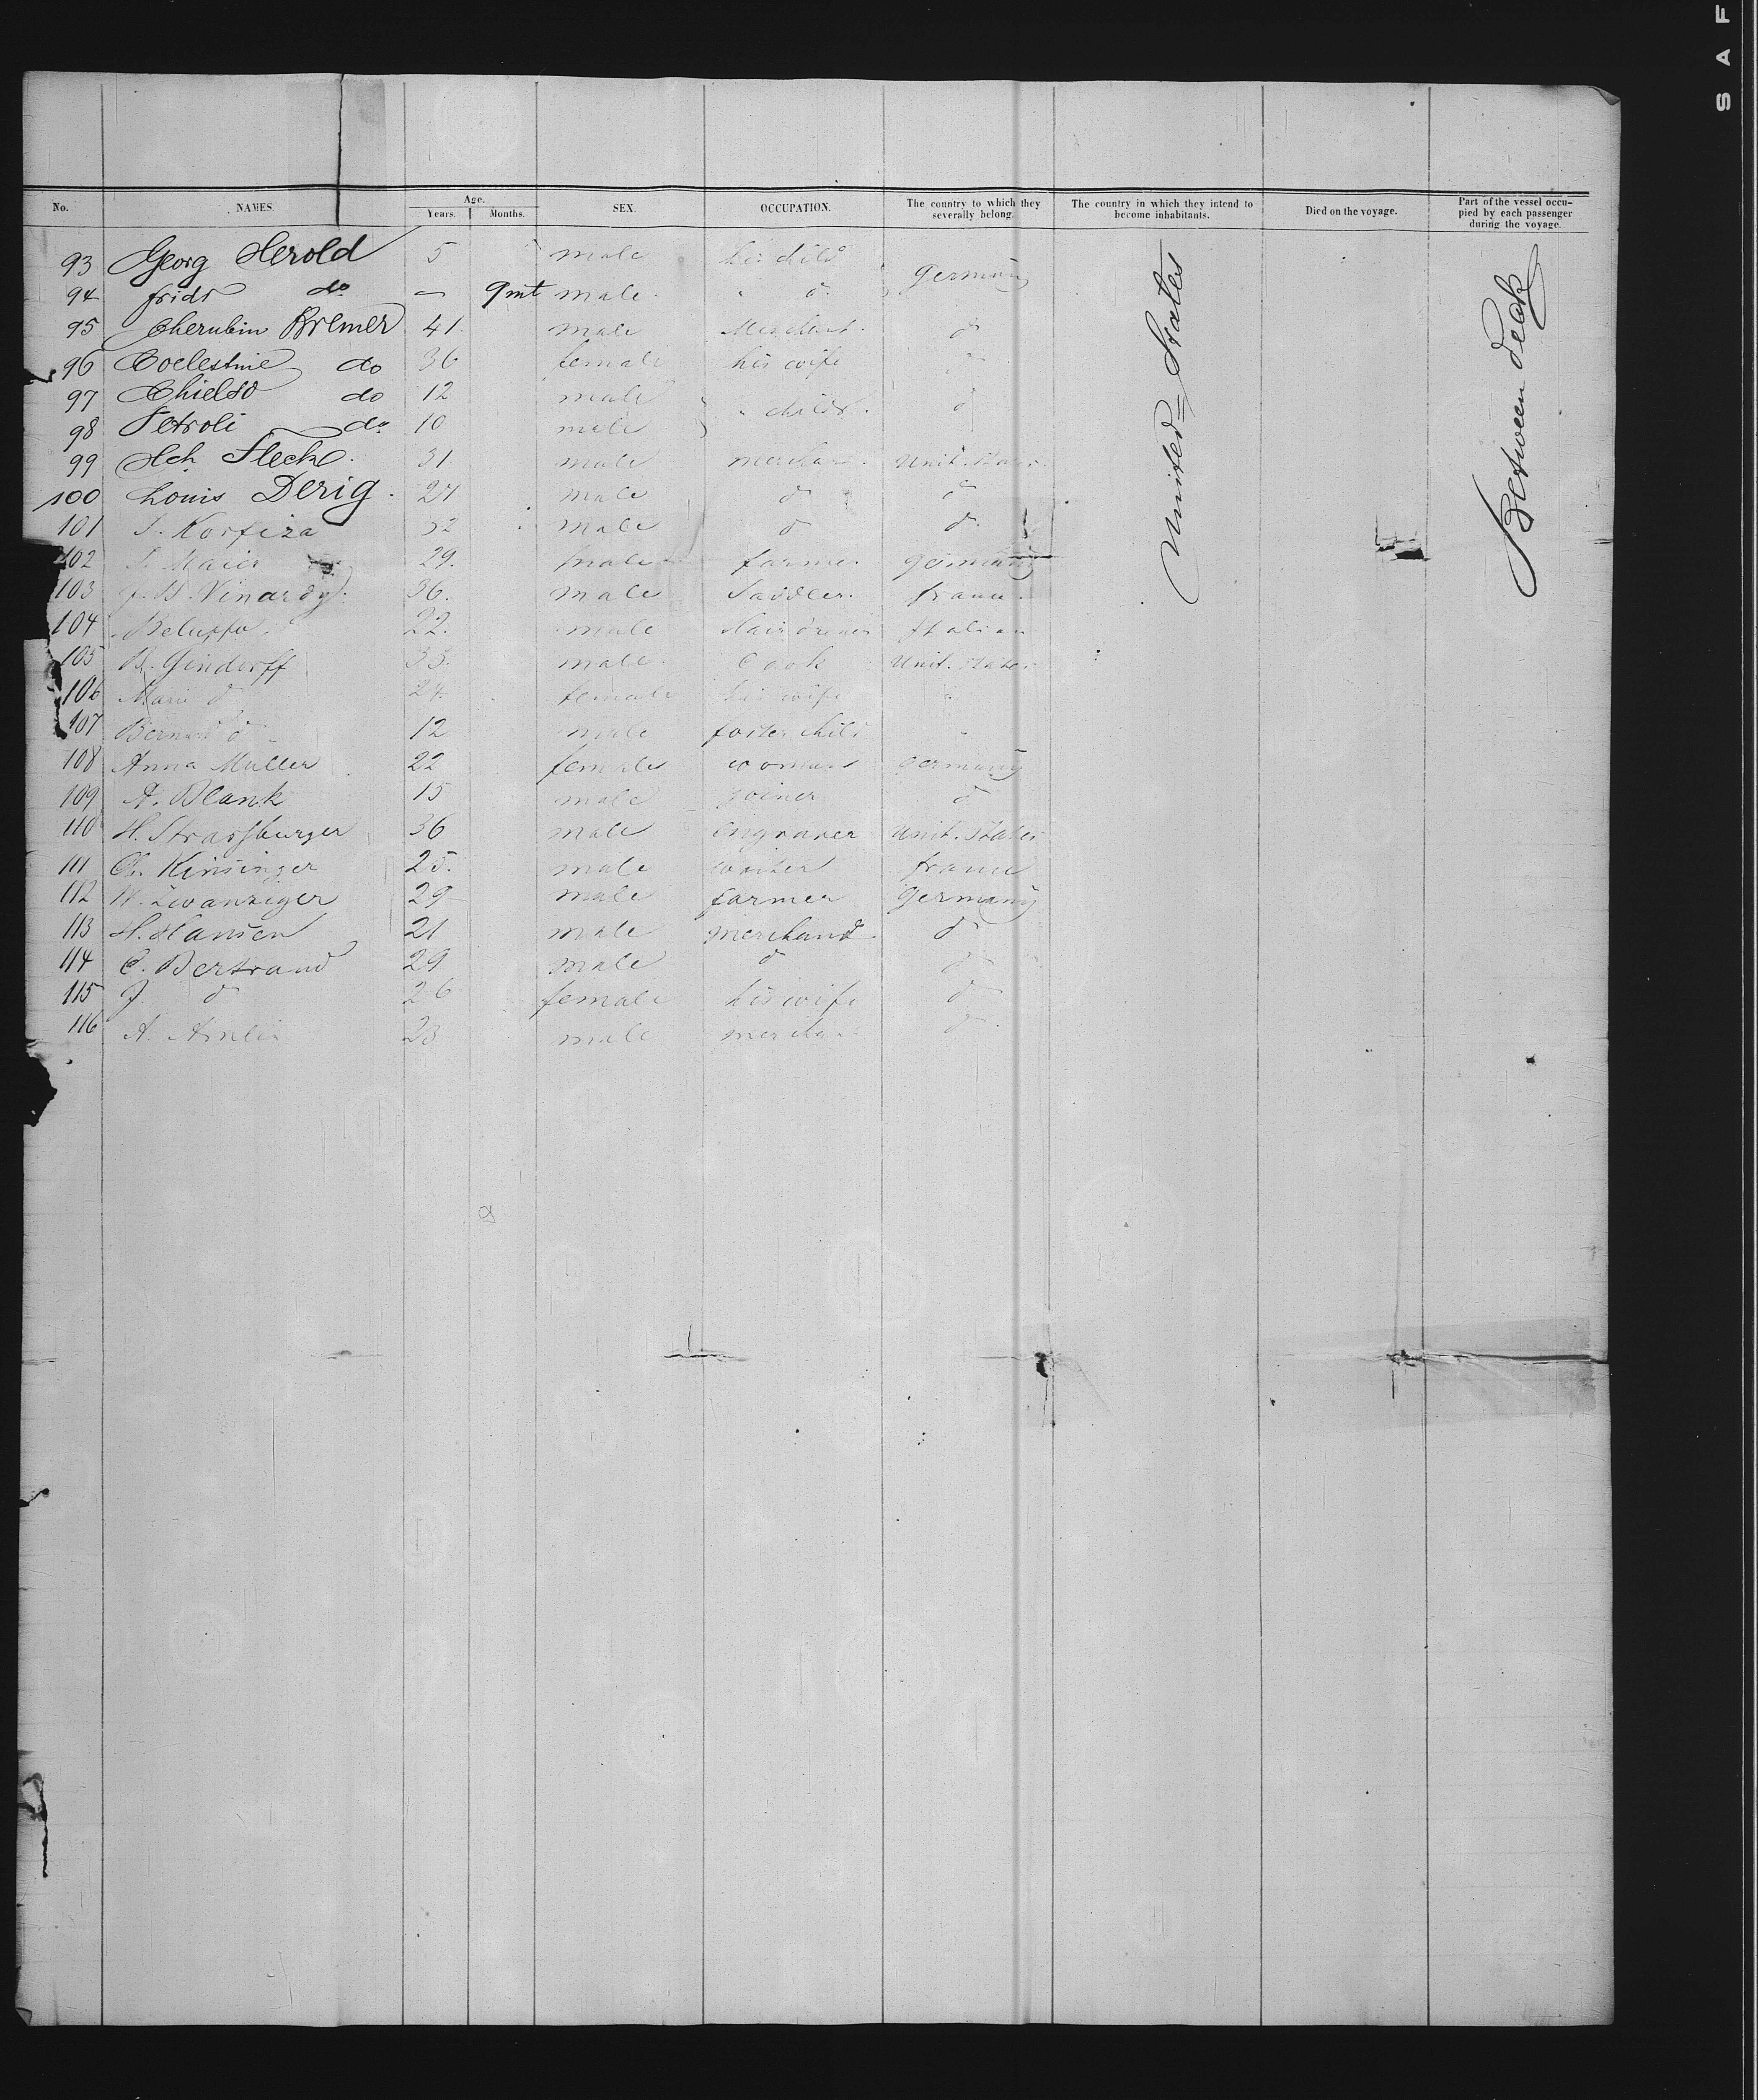 S A F
No. NAMES. Age. Years. Months. SEX. OCCUPATION. The country to which they severally belong. The country in which they intend to become inhabitants. Died on the voyage. Part of the vessel occupied by each passenger during the voyage.
93 Georg Herold 5 male his child Germany
94 fridr do — 9 mt male " d
95 Cherubin Bremer 41 male Merchant d
96 Coelestine do 36 female his wife
97 Chieldo do 12 male " childr. d
98 Petroli do 10 male
99 Hch Fleck 31 male merchan Unit. States
100 Louis Derig 27 male d d
101 J. Korfiza 32 male d d
102 J. Maier 29. male farmer germany
103 J. B. Vinardy 36. male Saddler. france
104 Beluffo 22. male Hair dresser Italian
105 B. Gindorff 33. male. Cook Unit. States
106 Marie d 24. female his wife "
107 Bernard d 12 male foster child
108 Anna Muller 22 female woman germany
109 A. Blank 15 male joiner d
110 H. Strassburger 36 male engraver Unit. States
111 Ch. Kinsinger 25. male france
112 W. Zwanziger 29 male farmer Germany
113 H. Hansen 21 male merchand d
114 C. Bertrand 29 male d d
115 J. d 26 female his wife d
116 A. 23 male merchan d
United States
Between deck